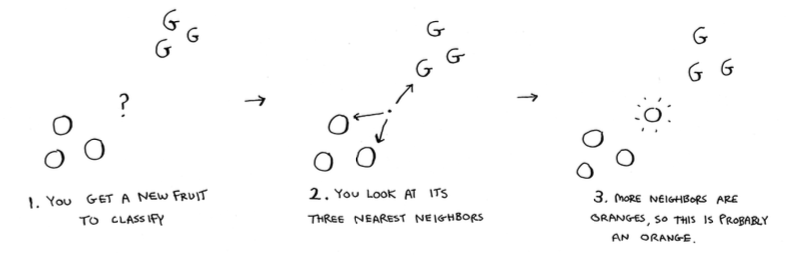 G
G
G
?
O
O
O
1. YOU GET A NEW FRUIT
TO CLASSIFY
G
G
G
O
O
O
2. YOU LOOK AT ITS
THREE NEAREST NEIGHBORS
G
G
G
O
O
O
O
3. MORE NEIGHBORS ARE
ORANGES, SO THIS IS PROBABLY
AN ORANGE.